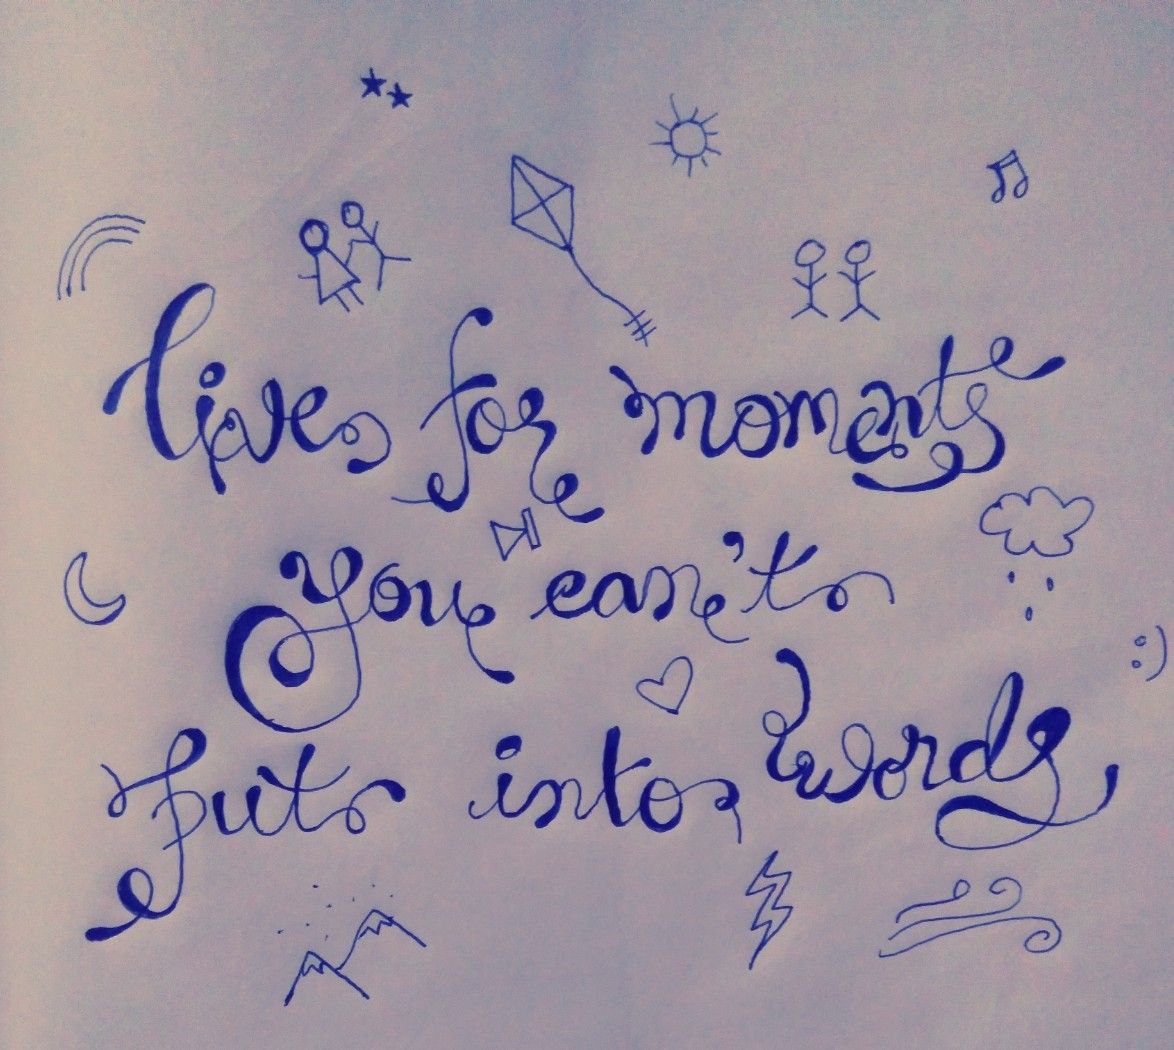 live for moments
you can't
:)
put into words